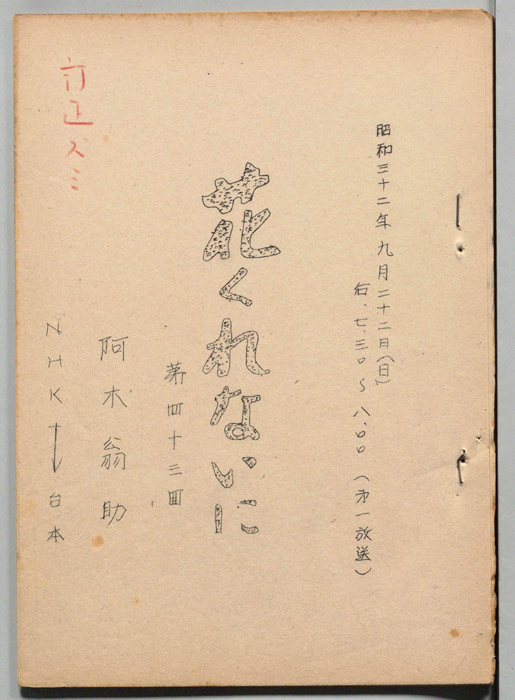 昭和三十二年九月二十二日(日)
后、七、三〇〜八、〇〇(オ一放送)
花くれないに
第四十三回
阿木翁助
NHK 台本
訂正ズミ